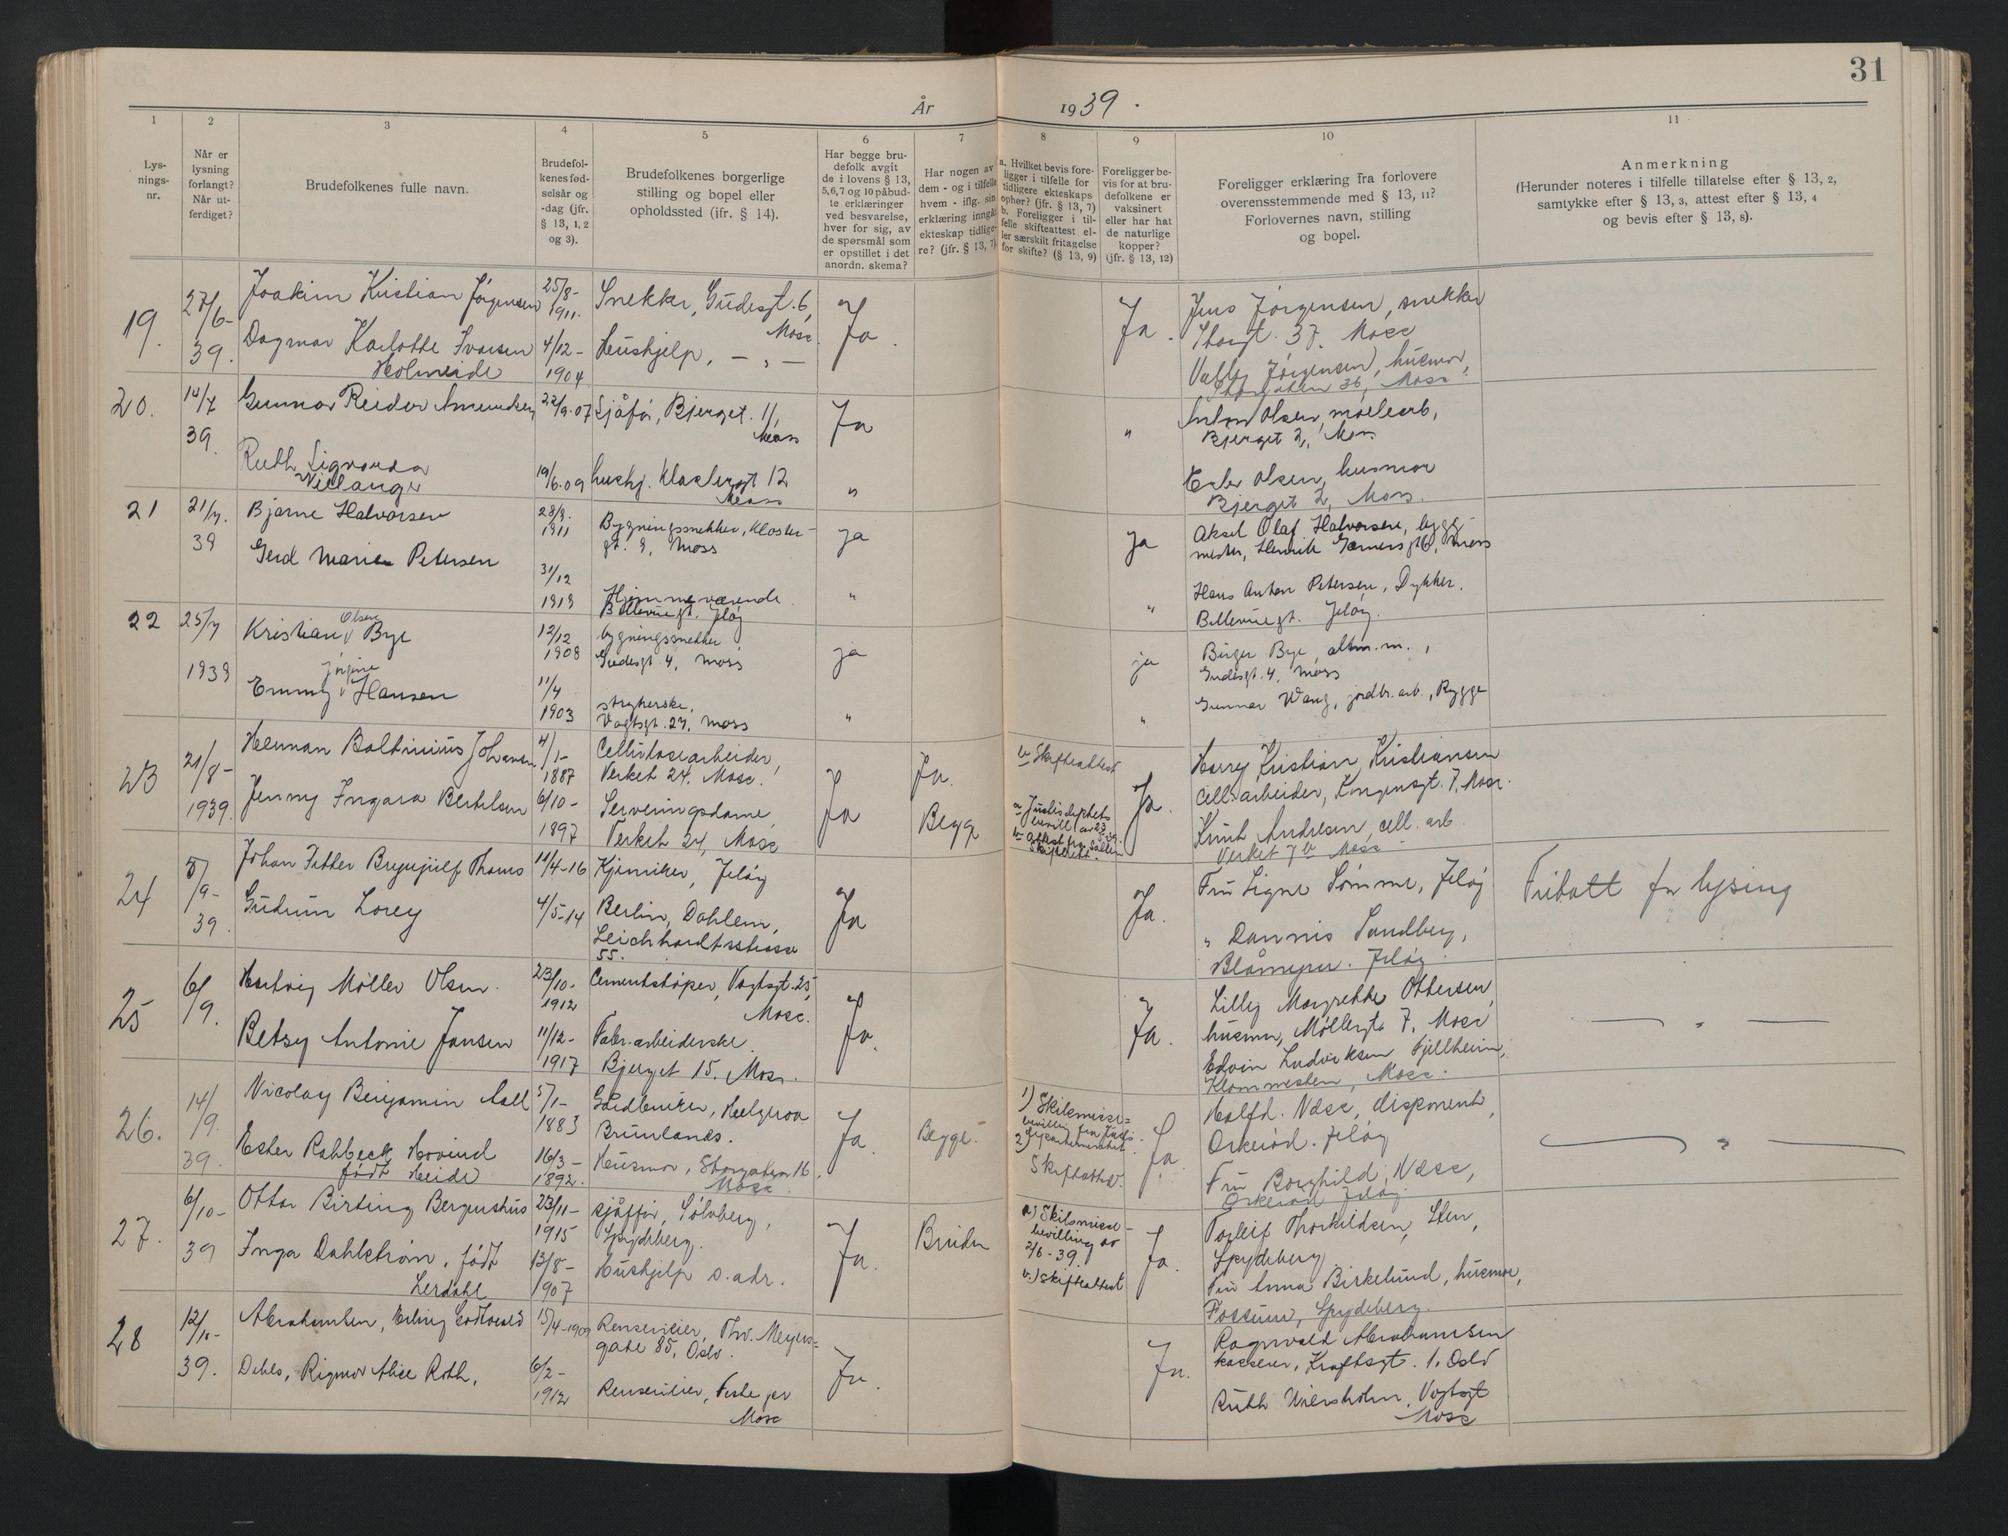 31
År 1939.
1 2 3 4 5 6 7 8 9 10 11
Lys-
nings-
nr.
Når er
lysning
forlangt?
Når ut-
ferdiget?
Brudefolkenes fulle navn.
Brudefol-
kenes fød-
selsår og
-dag (jfr.
§ 13, 1, 2
og 3).
Brudefolkenes borgerlige
stilling og bopel eller
opholdssted (ifr. § 14).
Har begge bru-
defolk avgit
de i lovens § 13,
5,6,7 og 10 påbud-
te erklæringer
ved besvarelse,
hver for sig, av
de spørsmål som
er opstillet i det
anordn. skema?
Har nogen av
dem - og i tilfelle
hvem - iflg. sin
erklæring inngåt
ekteskap tidlige-
re? (jfr. § 13, 7).
a. Hvilket bevis fore-
ligger i tilfelle for
tidligere ekteskaps
ophør? (jfr. § 13, 7)
b. Foreligger i til-
felle skifteattest el-
ler særskilt fritagelse
for skifte? (§ 13, 9)
Foreligger be-
vis for at bru-
defolkene er
vaksinert
eller har hat
de naturlige
kopper?
(jfr. § 13, 12)
Foreligger erklæring fra forlovere
overensstemmende med § 13, 11?
Forlovernes navn, stilling
og bopel.
Anmerkning
(Herunder noteres i tilfelle tillatelse efter § 13, 2,
samtykke efter § 13, 3, attest efter § 13, 4
og bevis efter § 13, 8).
19.
27/6-
39.
Joakim Kristian Jørgensen
Dagmar Karlotte Ivarsen
Holmeide
25/8-
1911.
4/12-
1904.
Snekker, Gudesgt. 6,
Moss.
Hushjelp, — „ —
Ja.
Ja.
Jens Jørgensen, snekker
Storgt. 37. Moss
Jørgensen, husmor,
Storgaten 36, Moss.
20.
14/7
39.
Gunnar Reidar Amundsen
Ruth Sigvarda
22/9.07
19/6.09
Sjåfør, Bjerget. 11,
Moss
hushj. Klostergt 12
Moss
Ja
„
„
Anton Olsen, møllearb,
Bjerget 2, Moss
Ester Olsen, husmor
Bjerget 2, Moss.
21
21/7.
39
Bjarne Halvorsen
Gerd Marie Petersen
1911
31/12
1919
Bygningssnekker, Kloster-
gt. 9, Moss
Hjemmeværende
Bellevuegt. Jeløy
Ja
„
Ja
„
Aksel Olaf Halvorsen, bygg-
mester, Henrik Gernersgt 6, Moss
Hans Anton Petersen, Dykker.
Bellevuegt. Jeløy.
22
25/7
1939
Olsen
Kristian Bye
Jørgine
Emmy Hansen
12/12
1908
11/4
1903
bygningssnekker
Gudesgt. 4, Moss
strykerske,
Vogtsgt. 27, Moss
ja
„
ja
„
Birger Bye, altm. m.,
Gudesgt. 4, Moss
Gunnar Wang, jordbr. arb., Rygge
23
21/8-
1939.
Herman Baltinius Johansen
Jenny Ingara Bertelsen
4/1-
1887
6/10-
1897
Cellulosearbeider,
Verket 24. Moss.
Serveringsdame,
Verket 24, Moss
Ja
Ja.
Begge
b Skifteattest
a Justisdeptets
bevill. av
Ja.
Harry Kristian Kristiansen
cell. arbeider, Kongensgt. 7, Moss.
Knut Andresen, cell. arb.
Verket 7b Moss.
24
5/9-
39.
Johan Fetter Brynjulf Thoms
Gudrun Lorey
11/4-16
4/5-14
Kjemiker, Jeløy
Berlin, Dahlem,
Leichhardtstrasse
55.
Ja
Ja.
Fru Signe Sømme, Jeløy
„ Dannis Sandberg,
Jeløy.
Fribatt for lysing
25
6/9.
Hartvig Møller Olsen.
Betsy Antonie Jansen
23/10-
1912
11/12-
1917
Cementstøper, Vogtsgt. 25,
Moss.
Fabr. arbeiderske.
Bjerget 15. Moss.
Ja.
Ja.
Lilly Margrethe Ottersen,
husmor, Møllergt. 7. Moss
Edvin Ludviksen Fjellheim,
Moss.
— „ —
26.
14/9.
39.
Nicolay Benjamin Aall
Ester Rahbeck Hovind
født Heide
5/1-
1883
16/3-
1892.
Gårdbruker, Helgeroa
Brunlanes.
Husmor, Storgaten 16,
Moss.
Ja.
Begge.
1) Skilsmisse-
bevilling fra Justis-
departementet.
2) Skifteattest.
Ja.
Halfd. Næss, disponent,
Orkerød. Jeløy
Fru Borghild Næss,
Orkerød Jeløy.
— „ —
27.
6/10-
39
Ottar Birting Bergershus
Inga Dahlstrøm, født
Lerdahl
23/11-
1915
13/8-
1907
sjåffør, Sølvberg,
Spydeberg.
Hushjelp s. adr.
Ja.
Bruden
a) Skilsmisse-
bevilling av
2/6-39.
b.) skifteattest
Ja.
Torleif Thorkildsen, Sten,
Spydeberg
Fru Anna Birkelund, husmor,
Fossum, Spydeberg.
28
12/10-
39.
Abrahamsen, Erling Godtvald
Dehls, Rigmor Alice Roth,
15/4-1909
6/2-
1912
Renserieier, Thv. Meyers-
gate 85, Oslo.
Renserieier, per
Moss
Ja.
Ja.
Ragnvald Abrahamsen
kasserer, Kraftsgt. 1. Oslo
Ruth Wiersholm, Vogtsgt
Moss